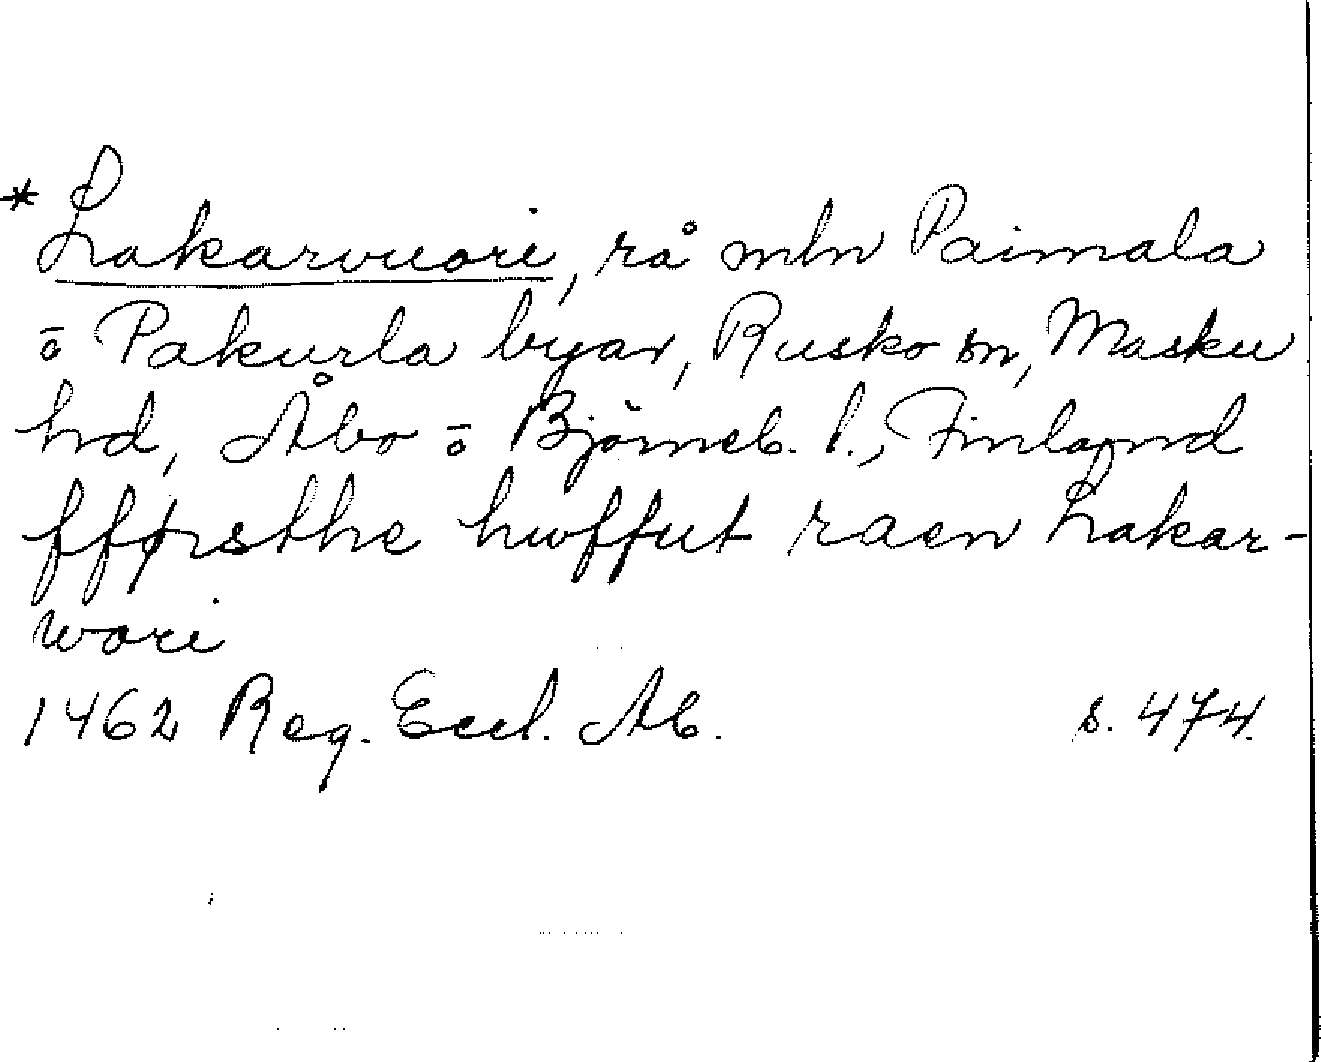 *Lakarvuori, rå mln Paimala
ō Pakurla byar, Rusko sn, Masku
hd, Åbo ō Björneb. l., Finland
fførsthe hwffut raen Lakar-
wori
1462 Reg. Eccl. Ab. s. 474.